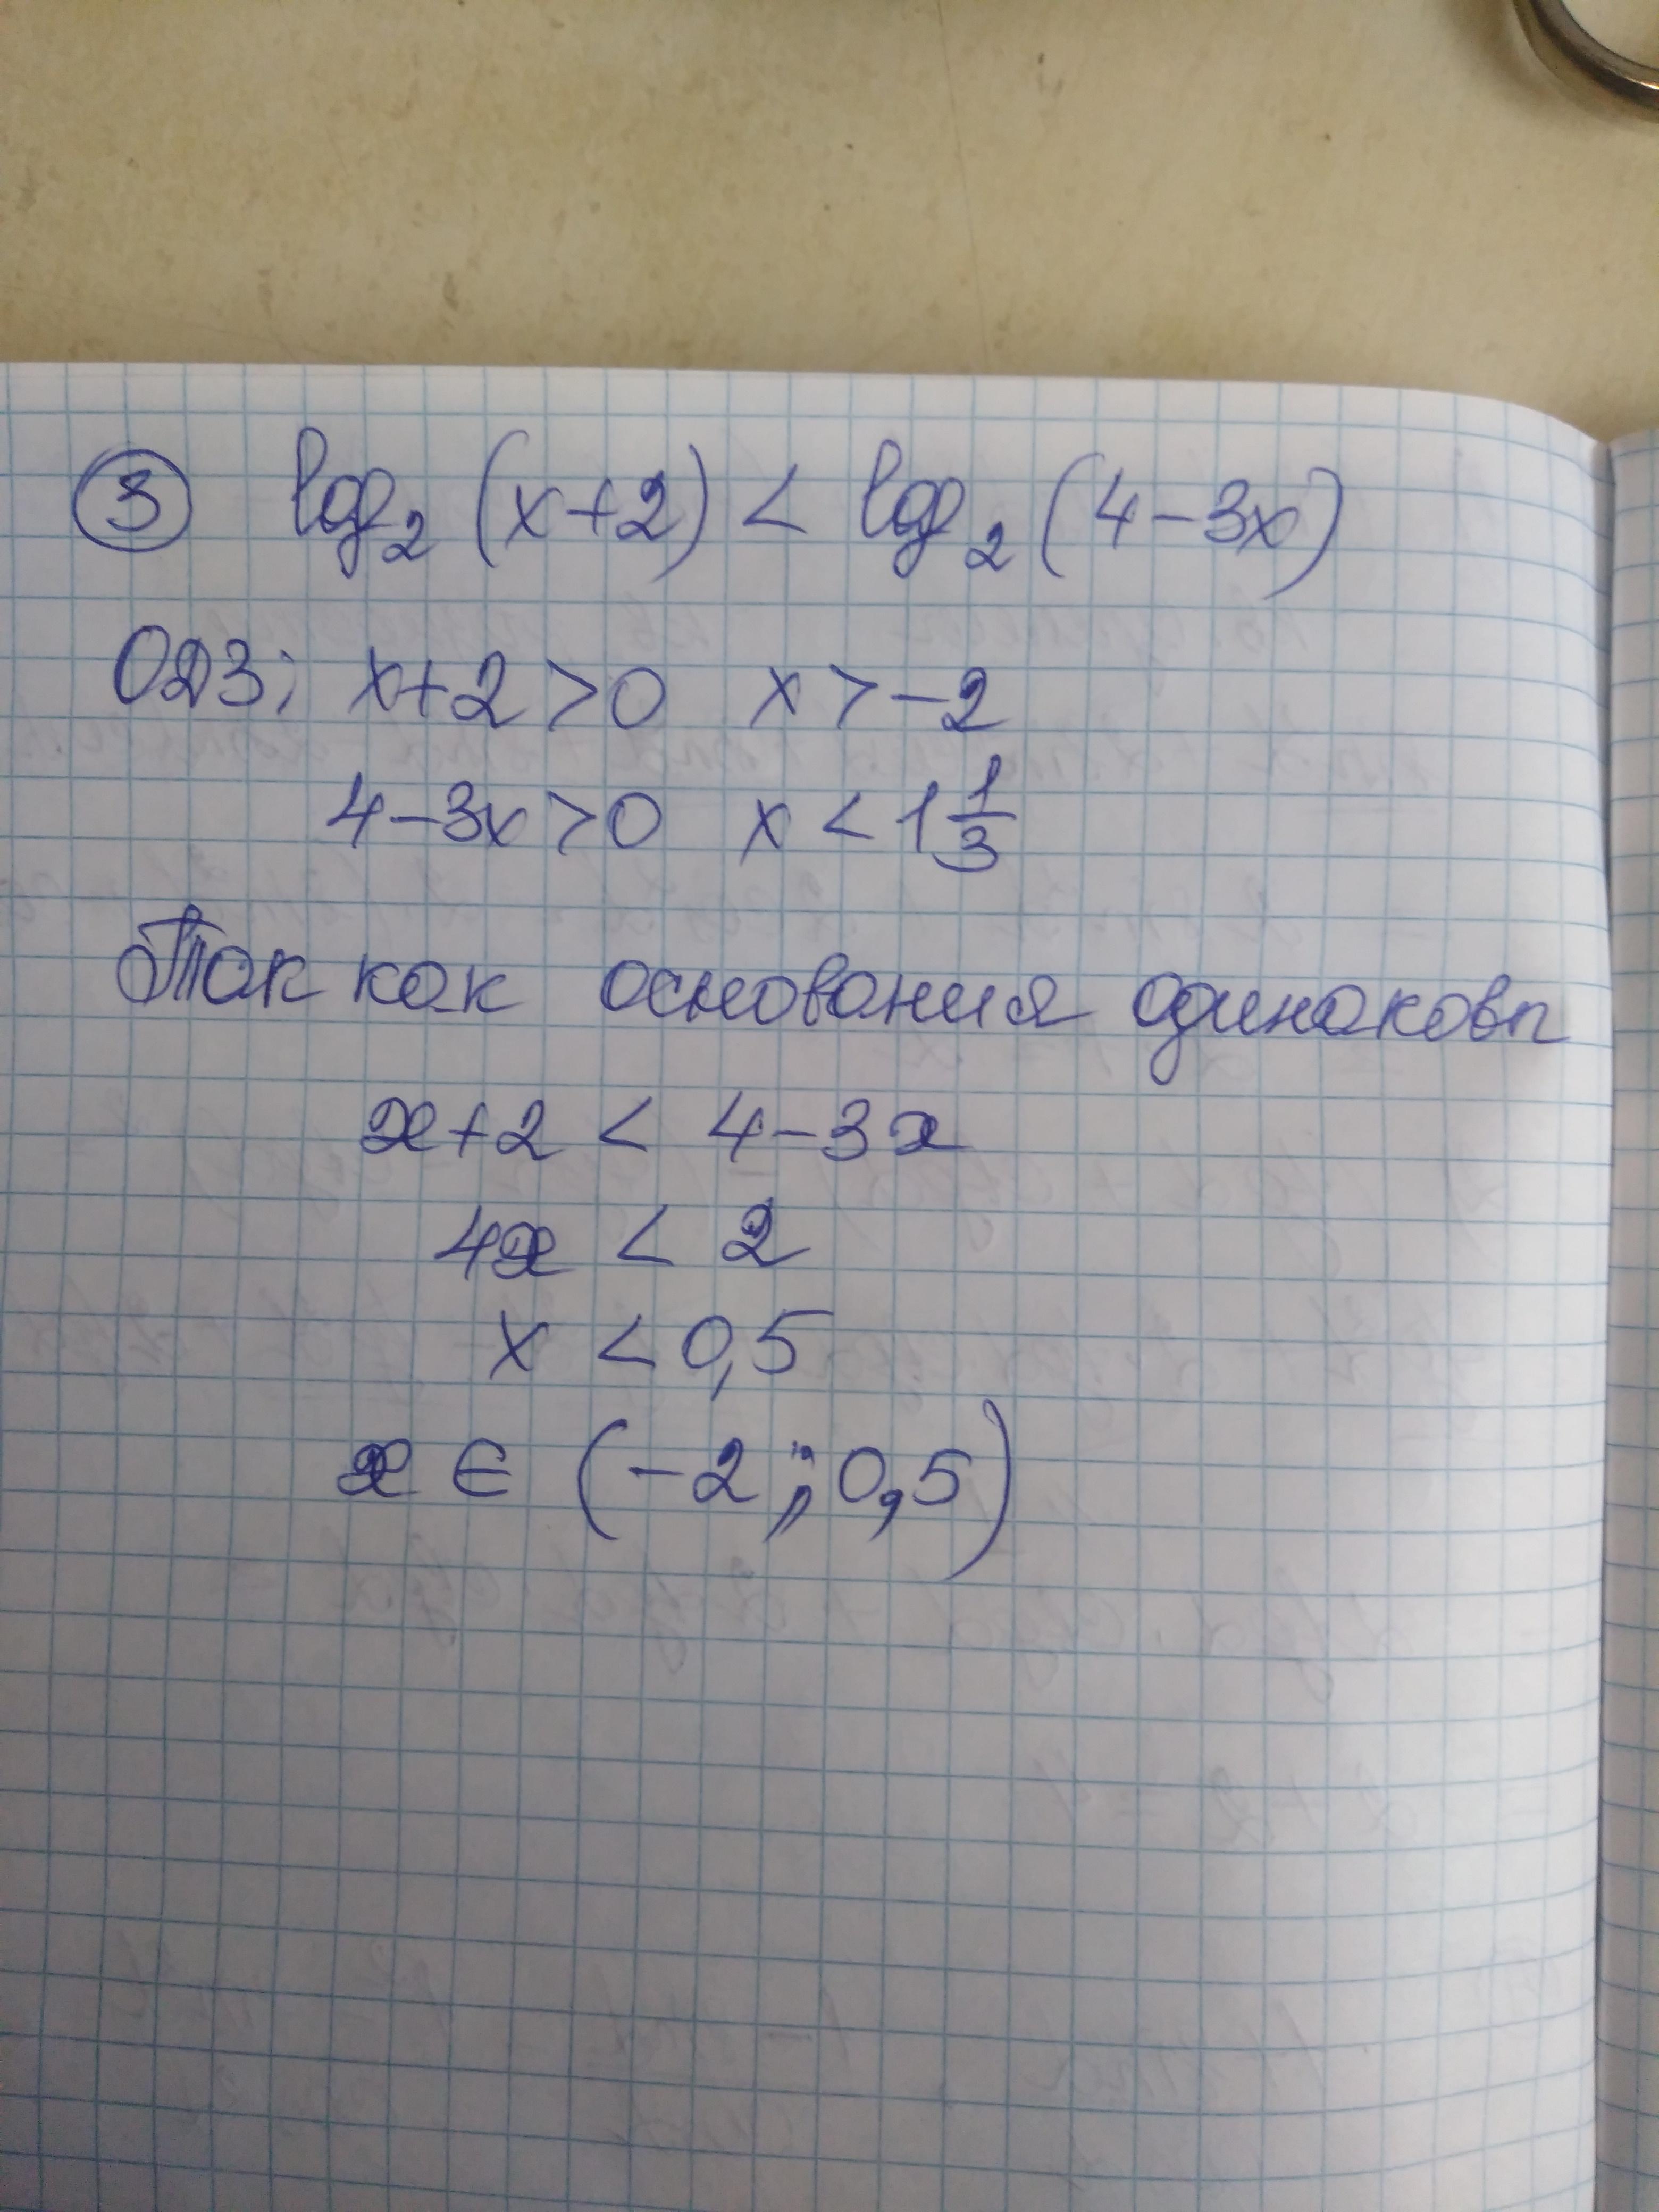 ③ log₂ (x+2) < log₂ (4-3x)
ОДЗ: x+2 > 0 x > -2
4-3x > 0 x < 1 1/3
Так как основания одинаковы
x+2 < 4-3x
4x < 2
x < 0,5
x ∈ (-2 ; 0,5)